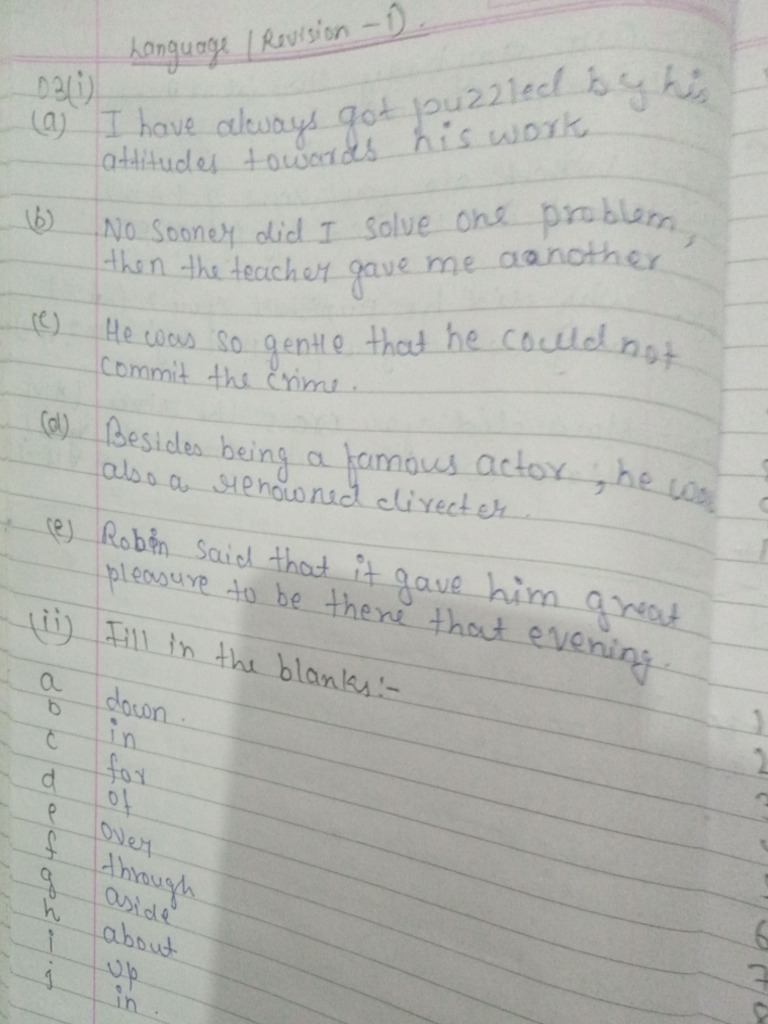 Language (Revision - 1).
Q3(i)
(a) I have always got puzzled by his
attitudes towards his work
(b) No sooner did I solve one problem,
then the teacher gave me aanother
(c) He was so gentle that he could not
commit the crime.
(d) Besides being a famous actor, he was
also a renowned directer.
(e) Robin said that it gave him great
pleasure to be there that evening.
(ii) Fill in the blanks:-
a down.
b in
c for
d of
e over
f through
g aside
h about
i up
j in.
1
2
6
7
8